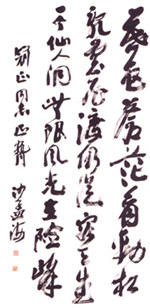 暮色蒼茫看勁松
亂雲飛渡仍從容天生
一个仙人洞無限風光在險峰
劉正同志正 沙孟海